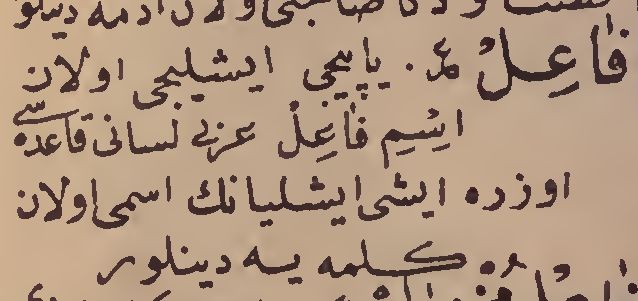 صاحبی اولان ادمه دینلو
فَاعِلْ عر. یاپیجی ایشلیجی اولان
اِسْمِ فَاعِلْ عربی لسانی قاعده‌سی
اوزره ایشی ایشلیانك اسمی اولان
كلمه یه دینلور